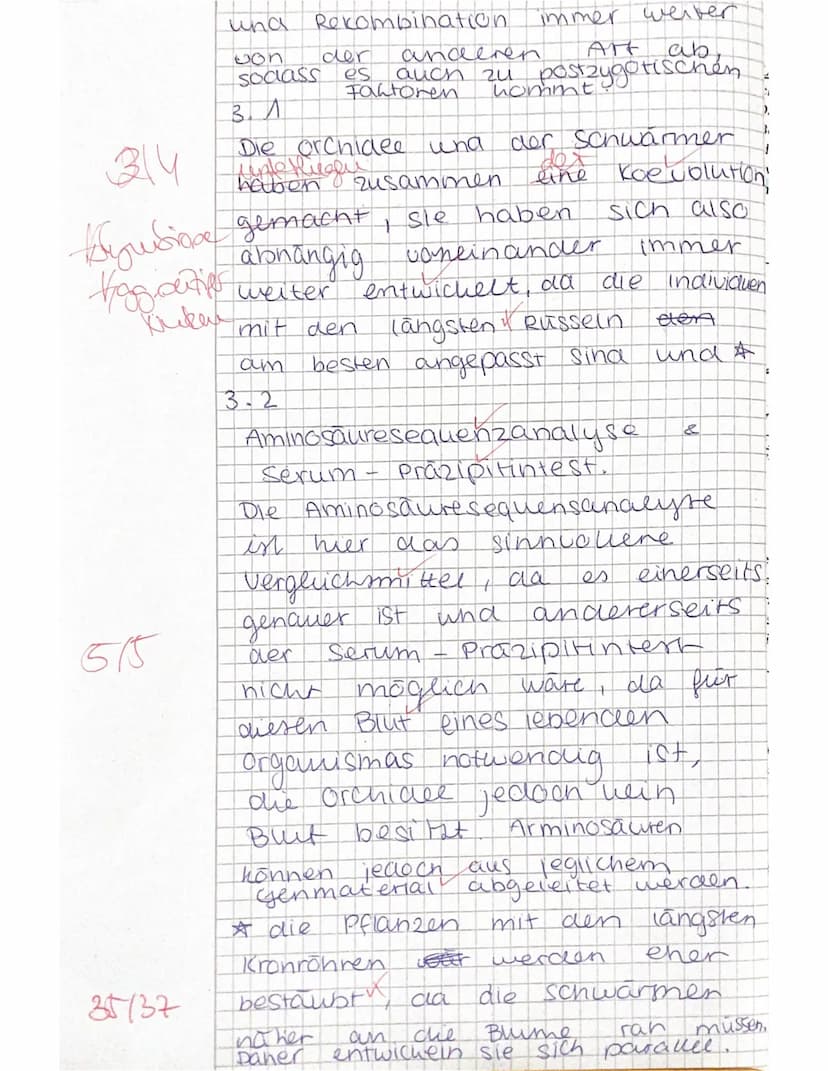 und Rekombination immer weiter
von der anderen Art ab,
sodass es auch zu postzygotischen
Faktoren kommt.
3.1
Die Orchidee und der Schwärmer
3/4
unterliegen
der
haben zusammen eine Koevolution
gemacht, sie haben sich also
abhängig voneinander immer
weiter entwickelt, da die Individuen
mit den längsten Rüsseln den
am besten angepasst sind und *
3.2
Aminosäuresequenzanalyse &
Serum - Präzipitintest.
Die Aminosäuresequensanalyse
ist hier das sinnvollene
Vergleichsmittel, da es einerseits
genauer ist und andererseits
5/5
der Serum - Präzipitintest
nicht möglich wäre, da für
diesen Blut eines lebenden
Organismas notwendig ist,
die Orchidee jedoch kein
Blut besitzt. Arminosäuren
können jedoch aus jeglichem
Genmaterial abgeleitet werden.
* die Pflanzen mit den längsten
Kronröhren werden eher
35/37
bestäubt, da die Schwärmer
näher an die Blume ran müssen.
Daher entwickeln sie sich parallel.